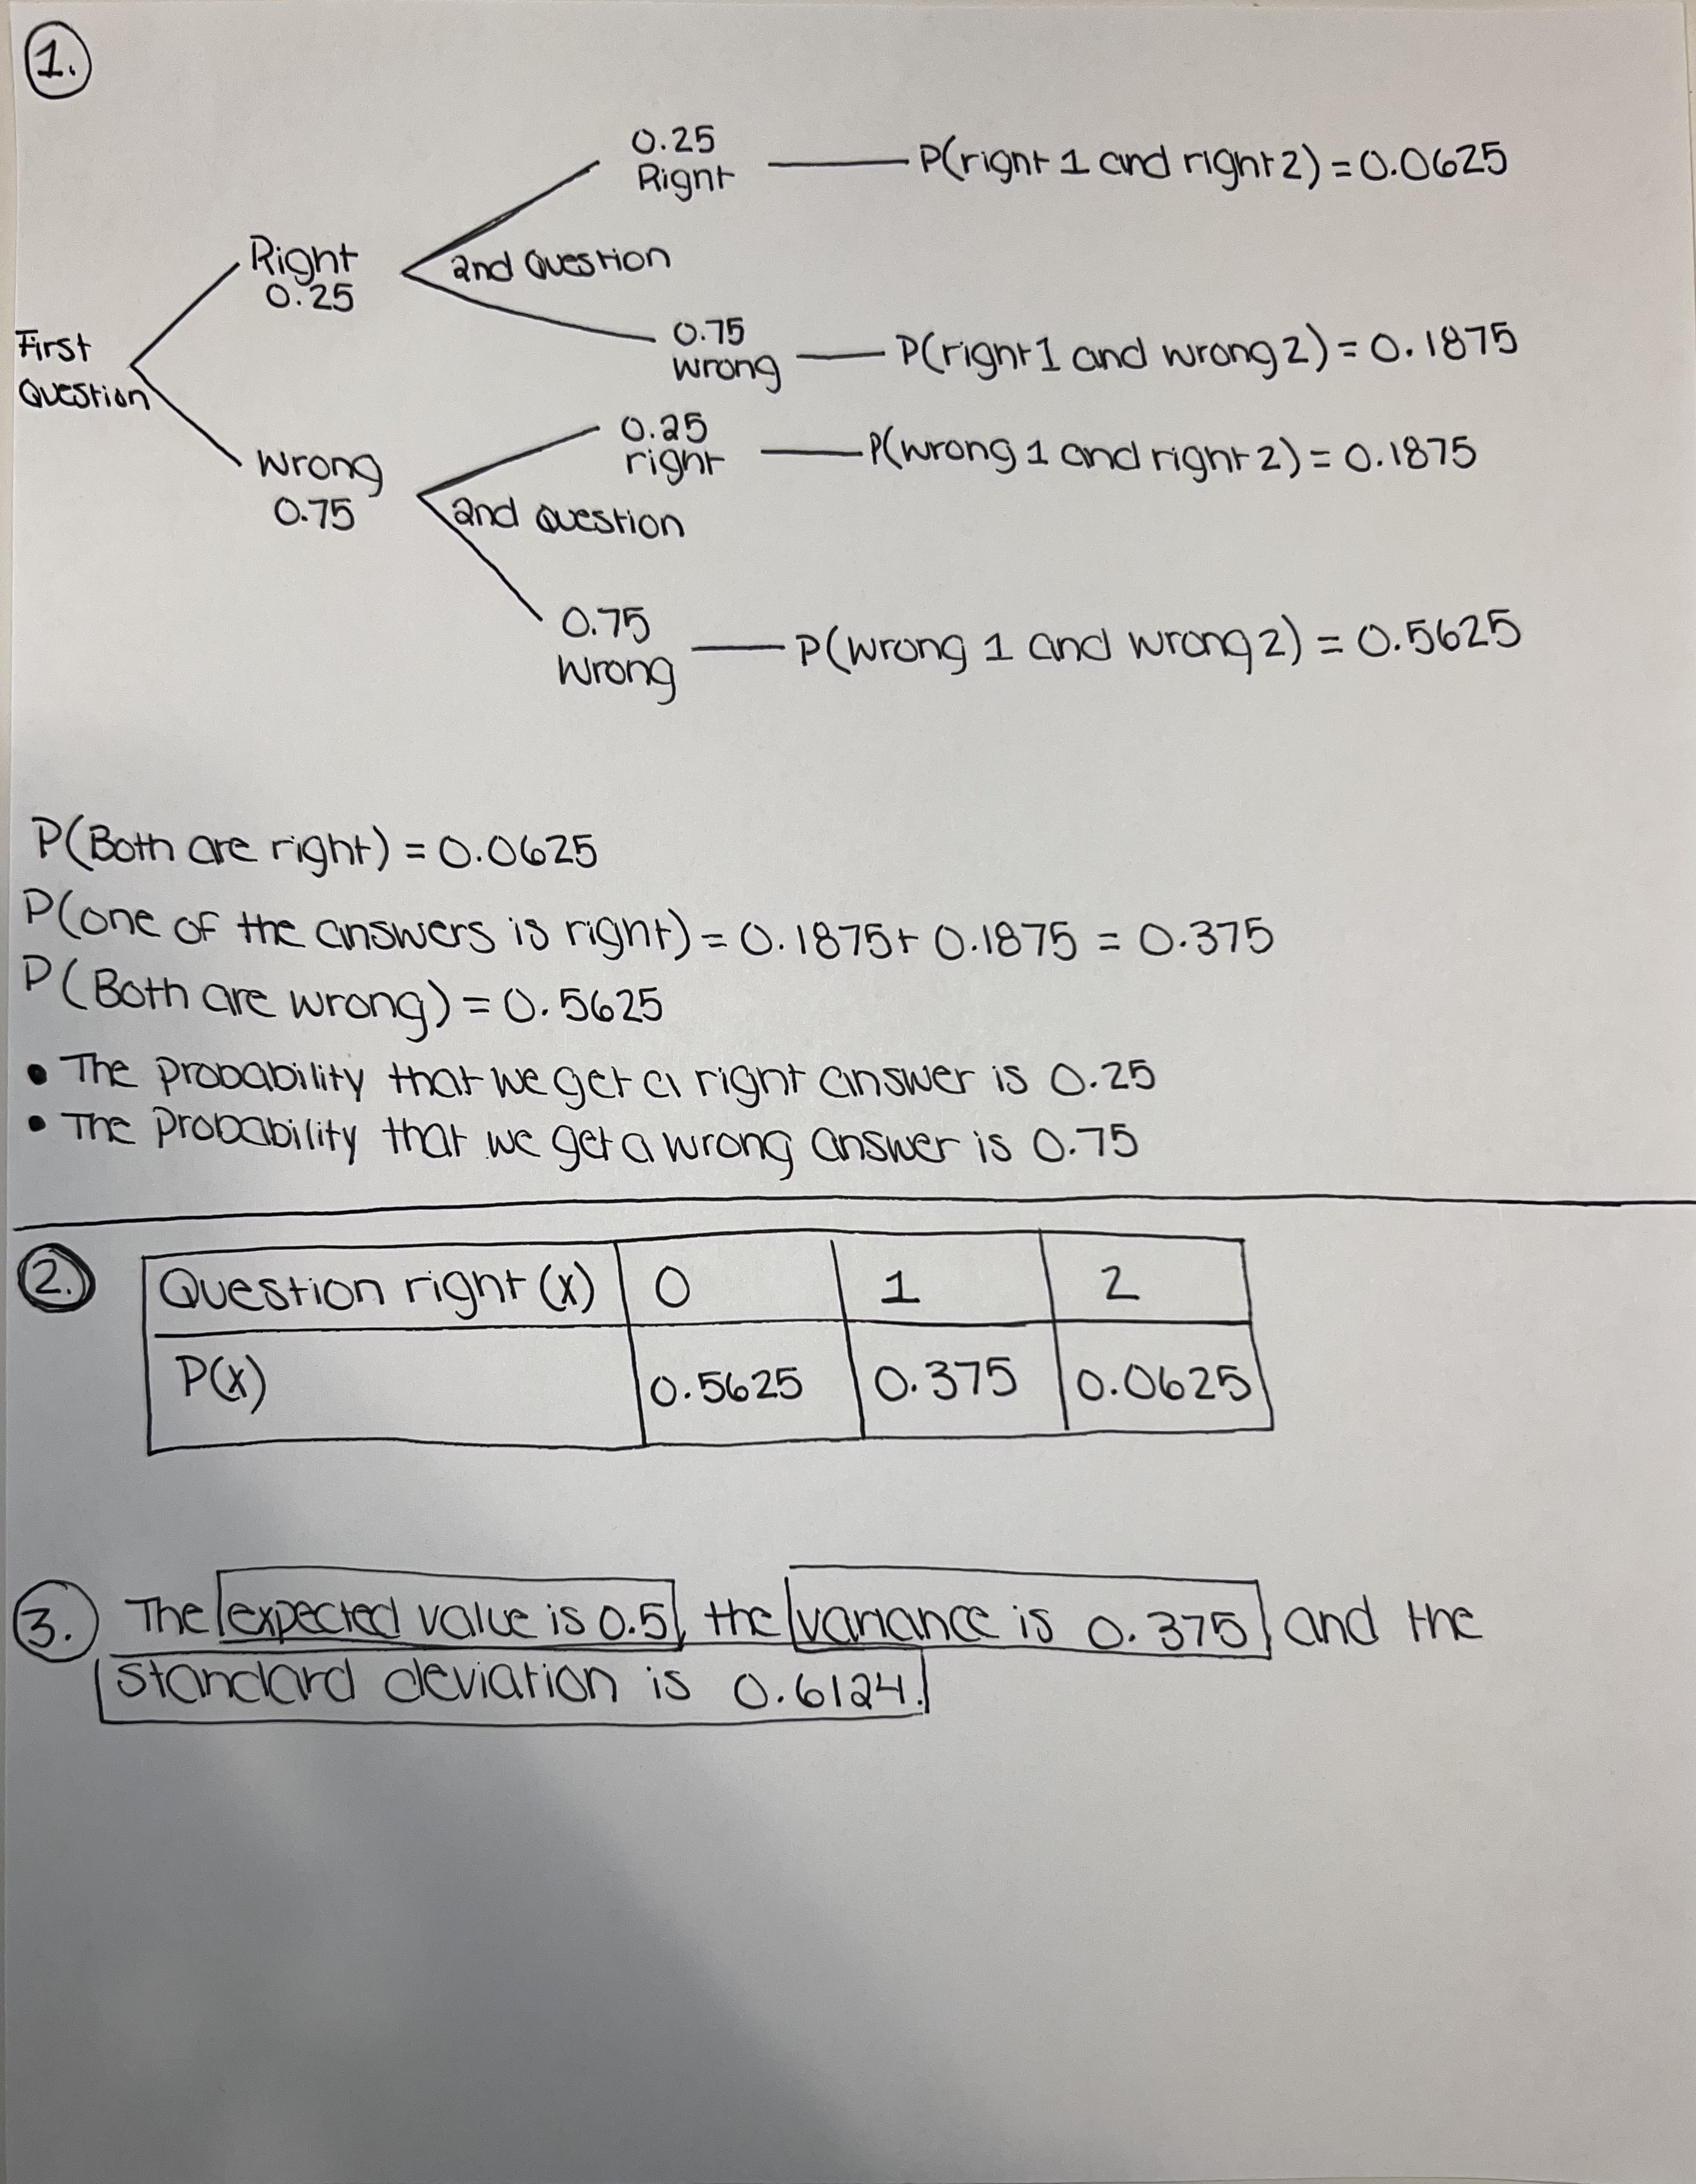 1.
0.25
Right
P(right 1 and right 2) = 0.0625
Right
0.25
2nd Question
First
Question
0.75
wrong
P(right 1 and wrong 2) = 0.1875
0.25
right
P(wrong 1 and right 2) = 0.1875
wrong
0.75
2nd question
0.75
Wrong
P(wrong 1 and wrong 2) = 0.5625
P(Both are right) = 0.0625
P(one of the answers is right) = 0.1875 + 0.1875 = 0.375
P(Both are wrong) = 0.5625
• The probability that we get a right answer is 0.25
• The probability that we get a wrong answer is 0.75
2. Question right (x) 0 1 2
P(x) 0.5625 0.375 0.0625
3. The expected value is 0.5, the variance is 0.375 and the
standard deviation is 0.6124.